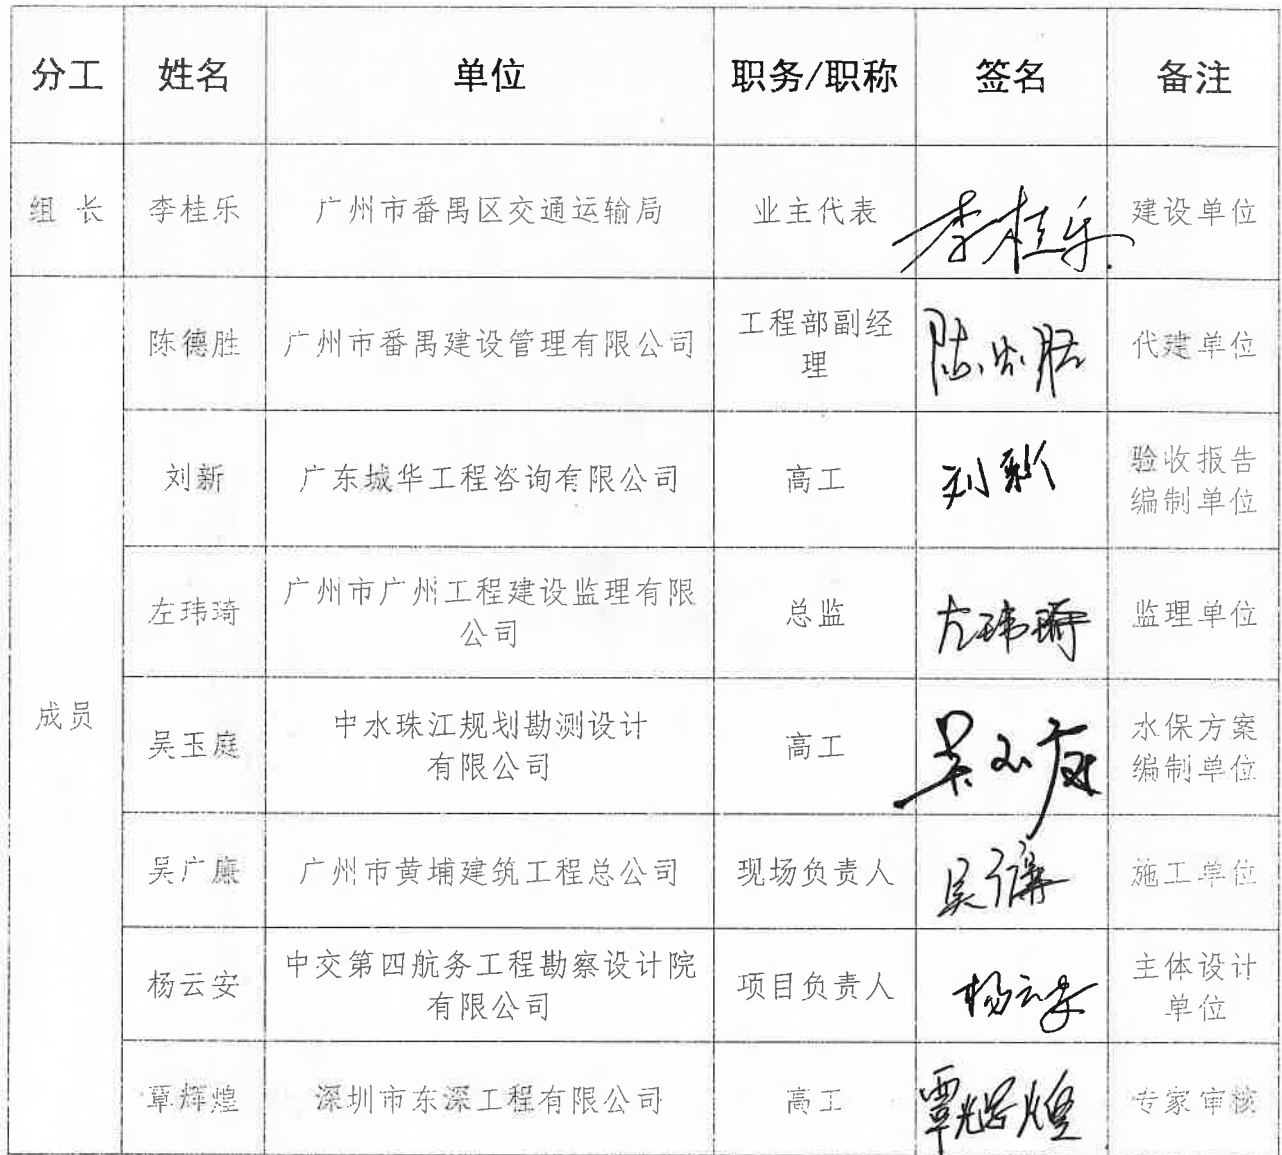 分工 姓名 单位 职务/职称 签名 备注
组 长 李桂乐 广州市番禺区交通运输局 业主代表 李桂乐 建设单位
成员
陈德胜 广州市番禺建设管理有限公司 工程部副经
理 陈德胜 代建单位
刘新 广东城华工程咨询有限公司 高工 刘新 验收报告
编制单位
左玮琦 广州市广州工程建设监理有限
公司 总监 左玮琦 监理单位
吴玉庭 中水珠江规划勘测设计
有限公司 高工 吴玉庭 水保方案
编制单位
吴广廉 广州市黄埔建筑工程总公司 现场负责人 吴广廉 施工单位
杨云安 中交第四航务工程勘察设计院
有限公司 项目负责人 杨云安 主体设计
单位
覃辉煌 深圳市东深工程有限公司 高工 覃辉煌 专家审核